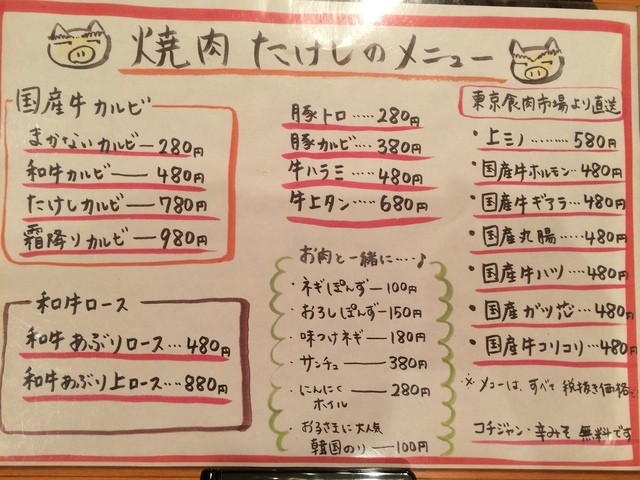 焼肉 たけしのメニュー
国産牛カルビ
まかないカルビ—280円
和牛カルビ—480円
たけしカルビ—780円
霜降りカルビ—980円
和牛ロース
和牛あぶりロース…480円
和牛あぶり上ロース…880円
豚トロ……280円
豚カルビ…380円
牛ハラミ…480円
牛上タン…680円
お肉と一緒に……♪
・ネギぽんず—100円
・おろしぽんず—150円
・味つけネギ—180円
・サンチュ—380円
・にんにく
ホイル—280円
・お子さまに大人気
韓国のり—100円
東京食肉市場より直送
・上ミノ………580円
・国産牛ホルモン…480円
・国産牛ギアラ…480円
・国産丸腸……480円
・国産牛ハツ…480円
・国産ガツ芯…480円
・国産牛コリコリ…480円
※メニューは、すべて税抜き価格
コチジャン・辛みそ 無料です